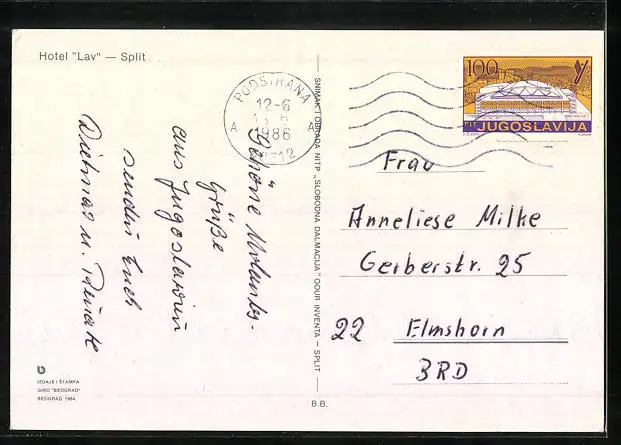 Hotel "Lav" — Split
PODSTRANA
12-6
1986
A A
100
JUGOSLAVIJA
Schöne Urlaubs-
Grüße
aus Jugoslawien
senden Euch
Dietmar u. Renate
SNIMAK I OBRADA NITP „SLOBODNA DALMACIJA" OOUR INVENTA — SPLIT
Frau
Anneliese Milke
Gerberstr. 25
22 Elmshorn
BRD
IZDAJE I ŠTAMPA
GIRO "BEOGRAD"
BEOGRAD 1984.
B.B.